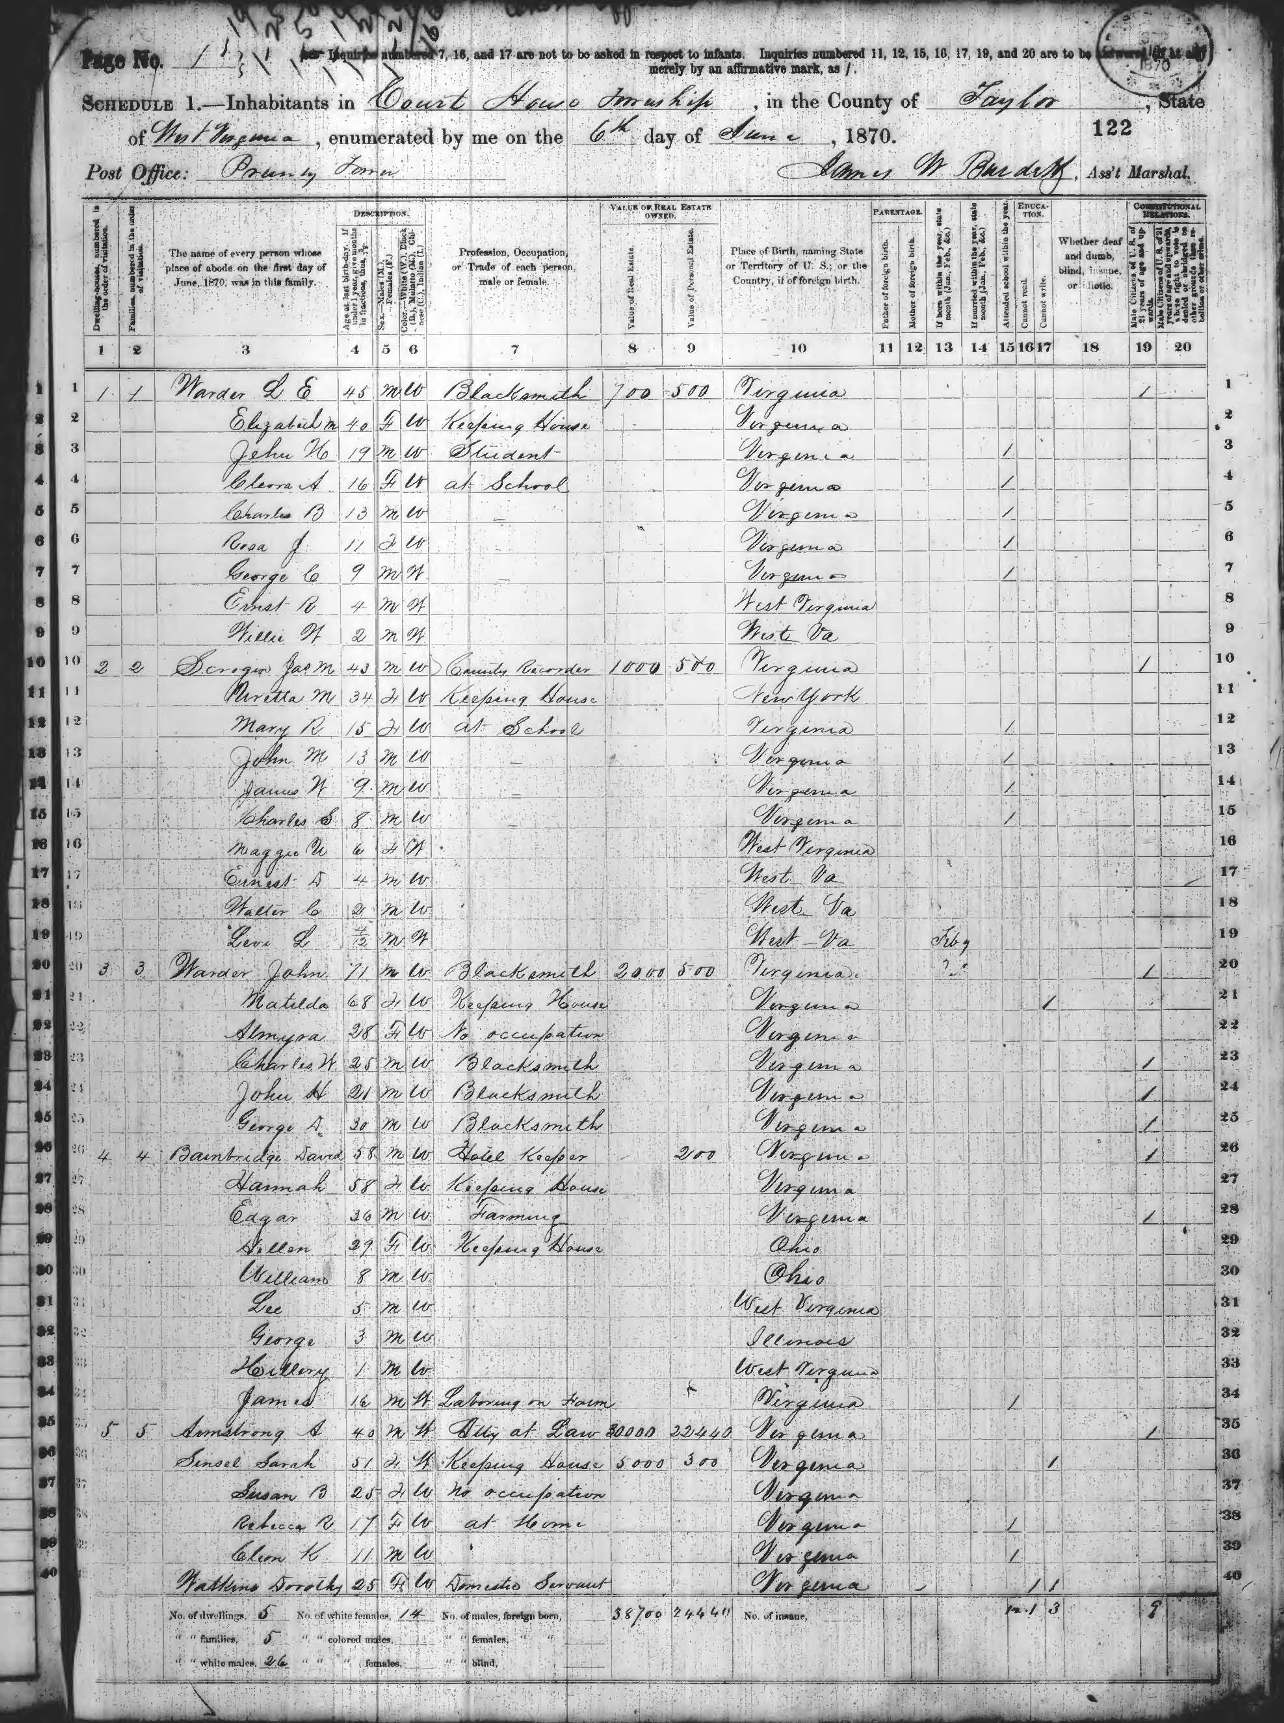 Page No. 1
Inquiries numbered 7, 16, and 17 are not to be asked in respect to infants. Inquiries numbered 11, 12, 15, 16, 17, 19, and 20 are to be answered (if at all)
merely by an affirmative mark, as /.
SCHEDULE 1.—Inhabitants in Court House Township, in the County of Taylor, State
of West Virginia, enumerated by me on the 6th day of June, 1870.
122
Post Office: Pruntytown James W Burdett, Ass't Marshal.
Dwelling-houses, numbered in the order of visitation.
Families, numbered in the order of visitation.
The name of every person whose place of abode on the first day of June, 1870, was in this family.
DESCRIPTION.
Age at last birth-day. If under 1 year, give months in fractions, thus, 3/12
Sex.—Males (M.), Females (F.)
Color.—White (W.), Black (B.), Mulatto (M.), Chinese (C.), Indian (I.)
Profession, Occupation, or Trade of each person, male or female.
VALUE OF REAL ESTATE OWNED.
Value of Real Estate.
Value of Personal Estate.
Place of Birth, naming State or Territory of U. S.; or the Country, if of foreign birth.
PARENTAGE.
Father of foreign birth.
Mother of foreign birth.
If born within the year, state month (Jan., Feb., &c.)
If married within the year, state month (Jan., Feb., &c.)
EDUCATION.
Attended school within the year.
Cannot read.
Cannot write.
Whether deaf and dumb, blind, insane, or idiotic.
CONSTITUTIONAL RELATIONS.
Male Citizens of U. S. of 21 years of age and upwards.
Male Citizens of U. S. of 21 years of age and upwards, whose right to vote is denied or abridged on other grounds than rebellion or other crime.
1 2 3 4 5 6 7 8 9 10 11 12 13 14 15 16 17 18 19 20
1 1 1 1 Warder L E 45 M W Blacksmith 700 500 Virginia / 1
2 2 Elizabeth M 40 F W Keeping House Virginia 2
3 3 John H 19 M W Student Virginia / 3
4 4 Cleora A 16 F W at School Virginia / 4
5 5 Charles B 13 M W Virginia / 5
6 6 Rosa J 11 F W Virginia / 6
7 7 George C 9 M W Virginia / 7
8 8 Ernst R 4 M W West Virginia 8
9 9 Willie W 2 M W West Va 9
10 10 2 2 Scrogin Jas M 43 M W County Recorder 1000 500 Virginia / 10
11 11 M 34 F W Keeping House New York 11
12 12 Mary R 15 F W at School Virginia / 12
13 13 John M 13 M W Virginia / 13
14 14 James W 9 M W Virginia / 14
15 15 Charles S 8 M W Virginia / 15
16 16 Maggie U 6 F W West Virginia 16
17 17 Ernest D 4 M W West Va 17
18 18 Walter C 2 M W West Va 18
19 19 Levi L 4/12 M W West Va Feby 19
20 20 3 3 Warder John 71 M W Blacksmith 2000 500 Virginia / 20
21 21 Matilda 68 F W Keeping House Virginia / 21
22 22 Almyra 28 F W No occupation Virginia 22
23 23 Charles W 25 M W Blacksmith Virginia / 23
24 24 John H 21 M W Blacksmith Virginia / 24
25 25 George D 30 M W Blacksmith Virginia / 25
26 26 4 4 Bainbridge David 58 M W Hotel Keeper 200 Virginia / 26
27 27 Hannah 58 F W Keeping House Virginia 27
28 28 Edgar 36 M W Farming Virginia / 28
29 29 Hellen 29 F W Keeping House Ohio 29
30 30 William 8 M W Ohio 30
31 31 Lee 5 M W West Virginia 31
32 32 George 3 M W Illinois 32
33 33 Hillery 1 M W West Virginia 33
34 34 James 16 M W Laboring on Farm Virginia / 34
35 35 5 5 Armstrong A 40 M W Atty at Law 30000 22440 Virginia / 35
36 36 Sinsel Sarah 51 F W Keeping House 5000 300 Virginia / 36
37 37 Susan B 25 F W No occupation Virginia 37
38 38 Rebecca R 17 F W at Home Virginia / 38
39 Cleon K 11 M W Virginia / 39
40 Watkins Dorothy 25 F W Domestic Servant Virginia / / 40
No. of dwellings, 5 No. of white females, 14 No. of males, foreign born, 38700 24440 No. of insane, 12 1 3 9
" " families, 5 " " colored males, " " females, " "
" " white males, 26 " " " females, " " blind,